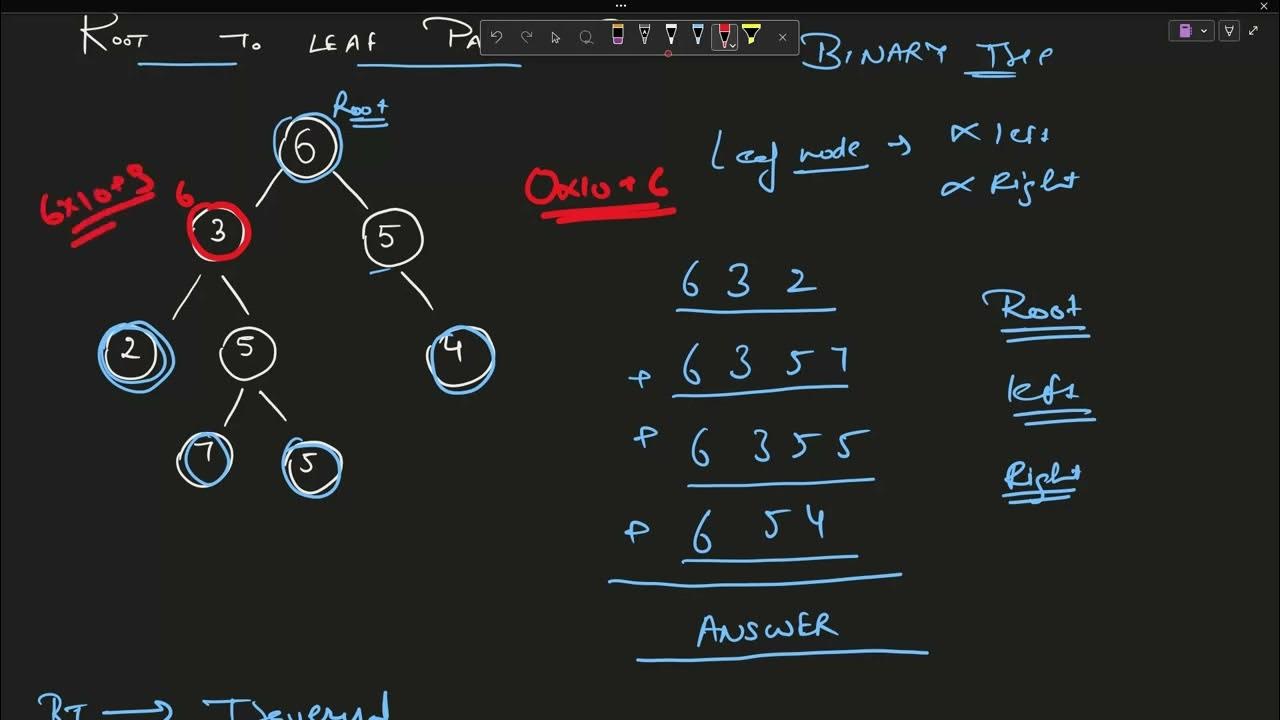 ROOT TO LEAF PA
BINARY Tree
Root
6
Leaf node → ∝ left
∝ Right
6x10+3
6
0x10+6
3
5
6 3 2
Root
2
5
4
+ 6 3 5 7
left
7
5
+ 6 3 5 5
Right
+ 6 5 4
ANSWER
BT → Traversal